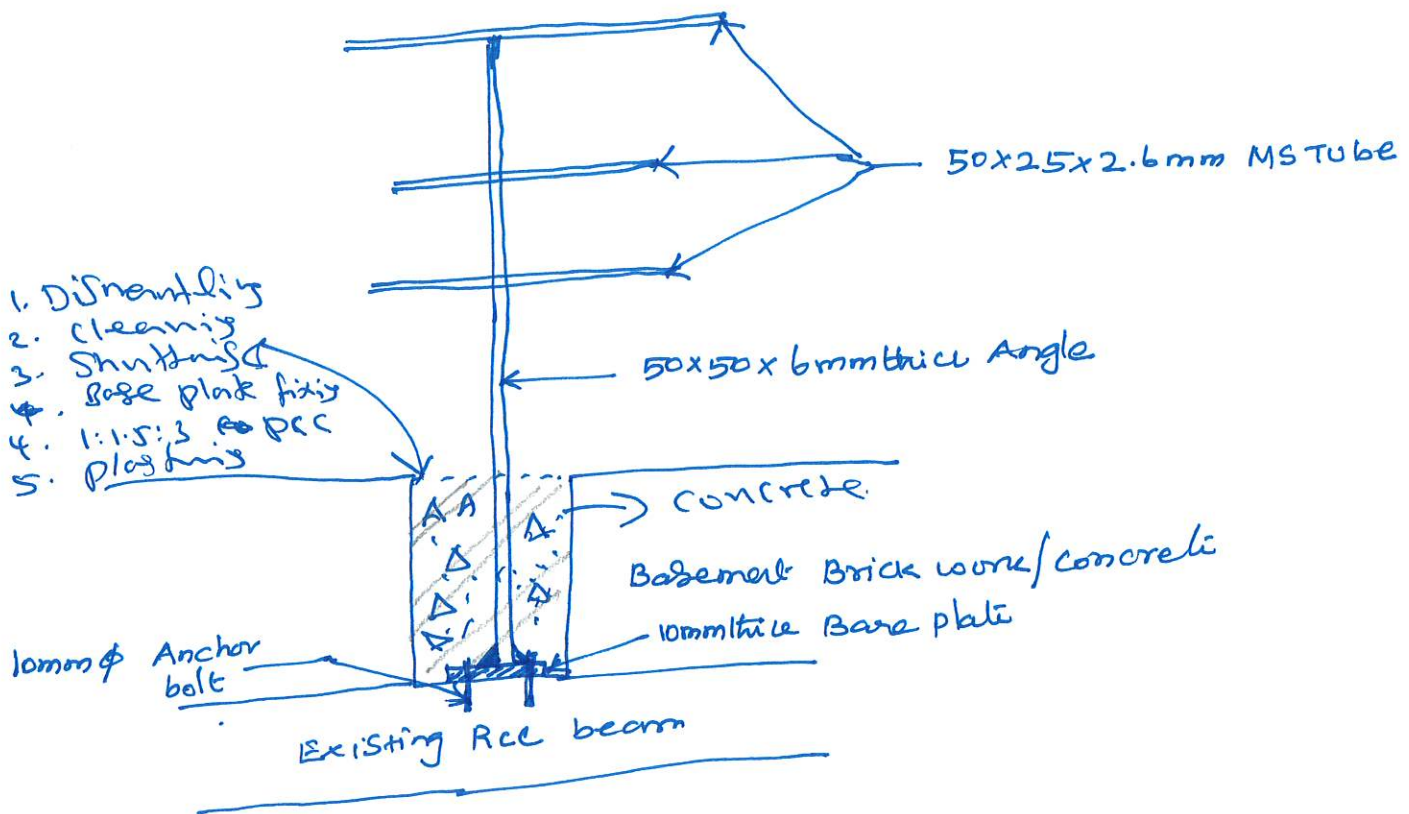 50x25x2.6mm MS Tube
1. Dismantling
2. cleaning
3. Shuttring
4. Base plate fixing
4. 1:1.5:3 PCC
5. plastring
50x50x6mm thick Angle
Concrete.
Basement Brick work/concrete
10mm thick Base plate
10mm φ Anchor
bolt
Existing RCC beam